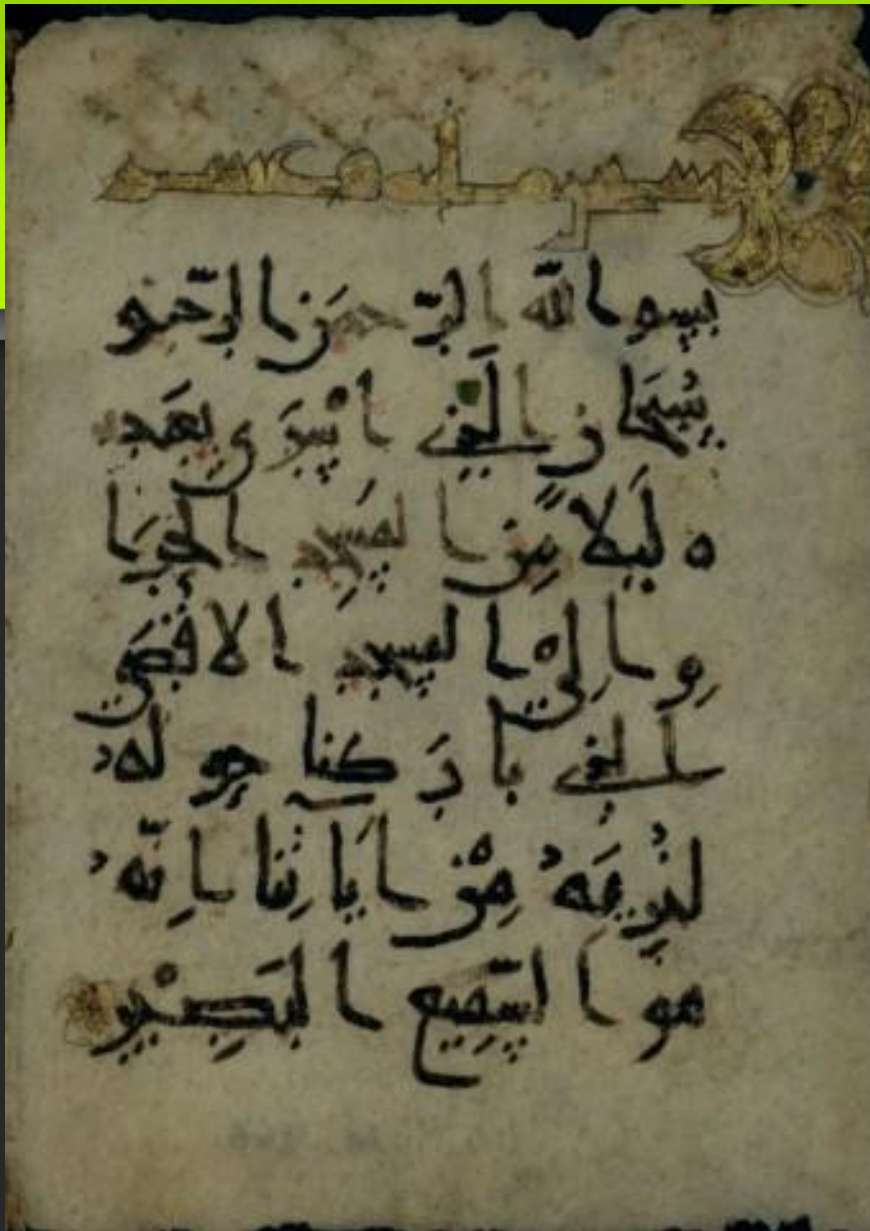 مايه وعشر
بِسمِ اللّه الرّحمَن الرّحيم
سُبْحَان الَّذِي اسْرَى بِعَبْدِ
ه لَيْلًا مِّنَ المَسْجِدِ الحَرَا
مِ اِلَى المَسْجِدِ الاقْصَى
الَّذِي بَارَكنا حَولَهُ
لِنُرِيَهُ مِنْ اياتِنا اِنّهُ
هوَ السّمِيع البَصِيْر